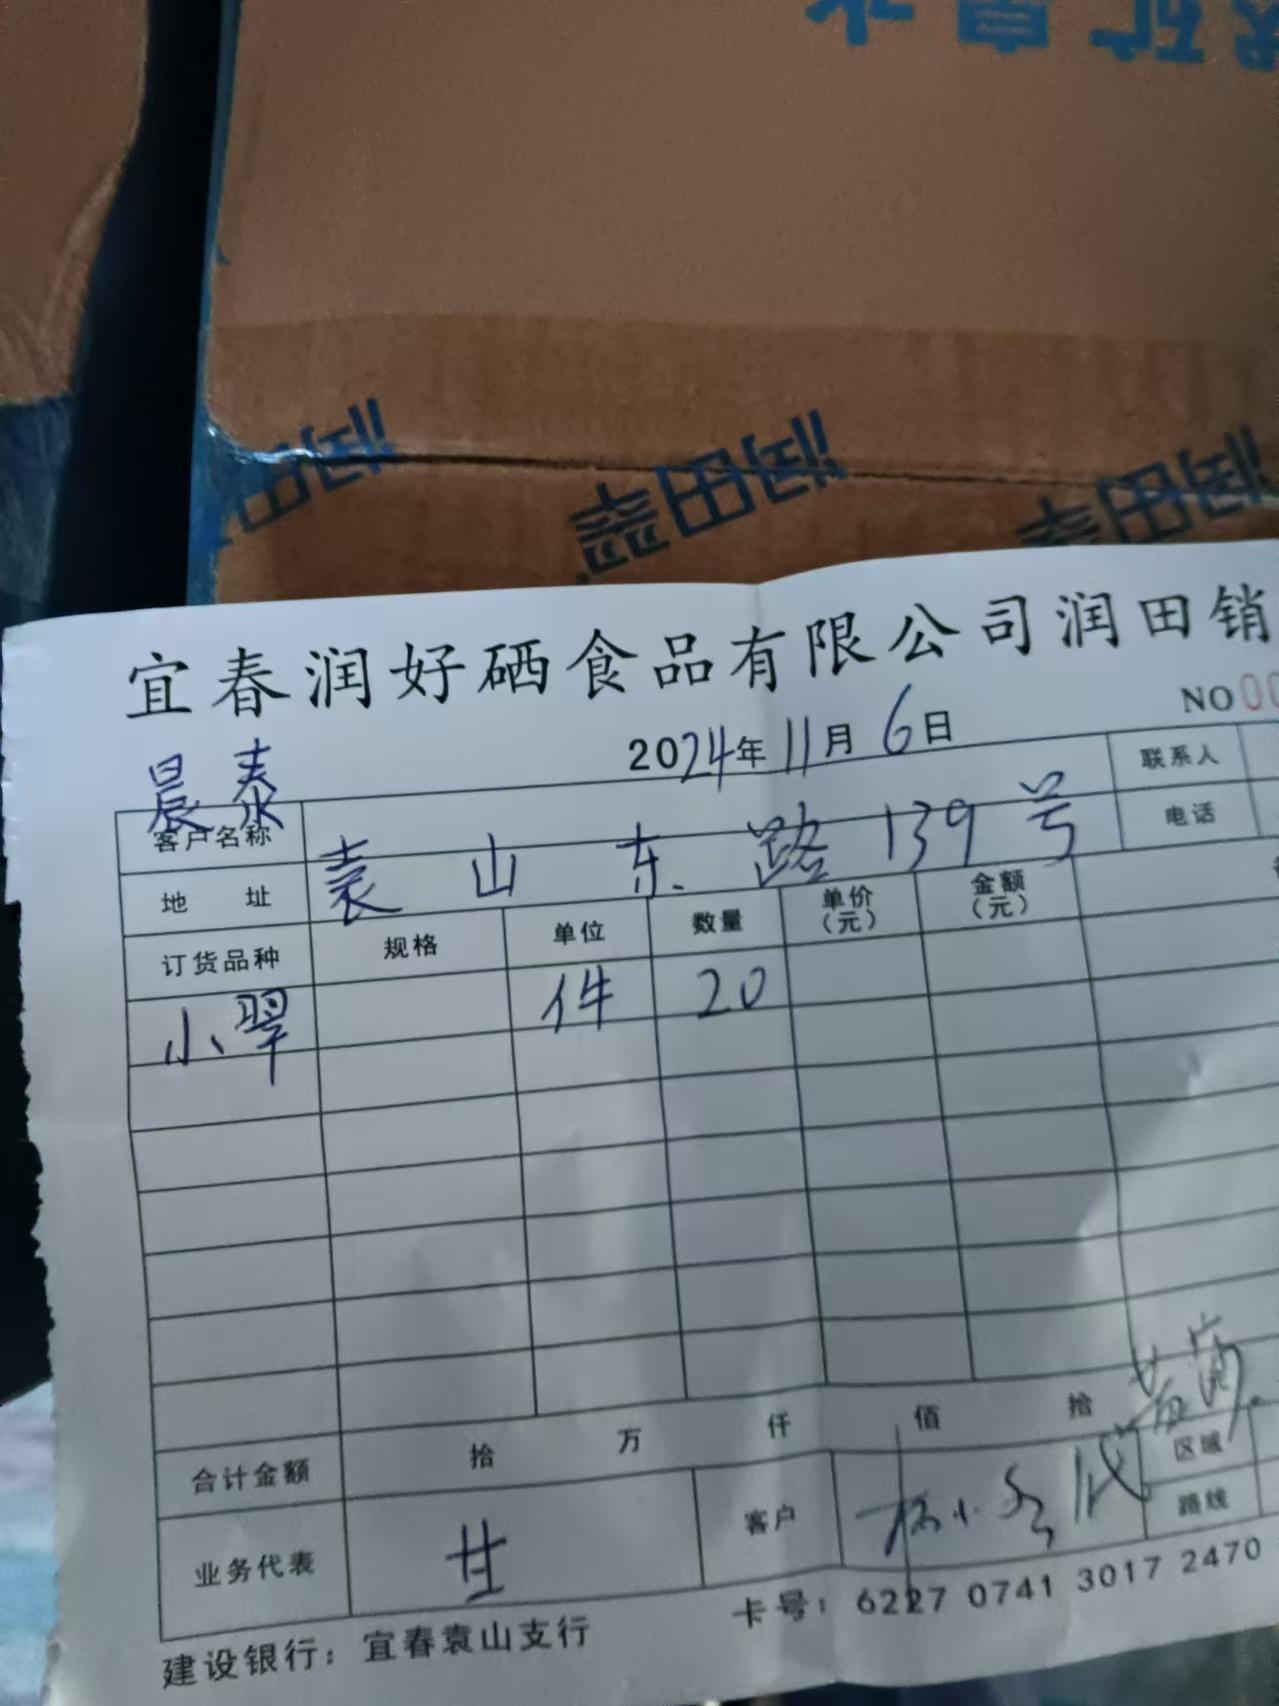 矿泉水
润田
润田翠
润田翠
宜春润好硒食品有限公司润田销
NO 00
2024年11月6日
晨泰
客户名称
联系人
地址 袁山东路139号
电话
订货品种 规格 单位 数量 单价(元) 金额(元)
小翠 件 20
合计金额 拾 万 仟 佰 拾
业务代表 甘 客户 杨小 代 区域
路线
建设银行：宜春袁山支行 卡号：6227 0741 3017 2470